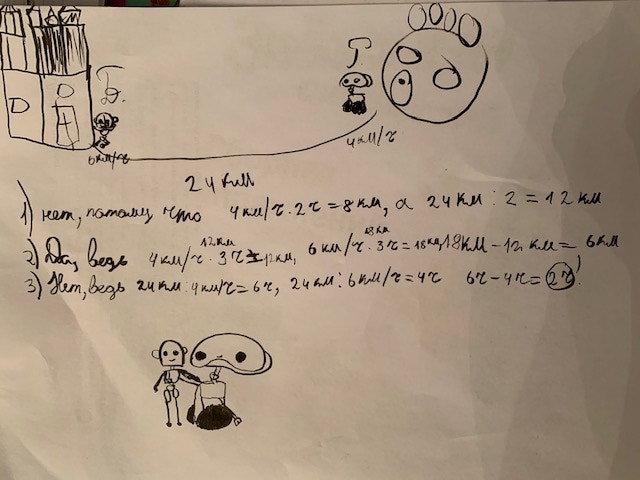 Д.
Г
6 км/ч
4 км/ч
24 км
1) Нет, потому что 4 км/ч · 2 ч = 8 км, а 24 км : 2 = 12 км
12 км 18 км
2) Да, ведь 4 км/ч · 3 ч = 12 км, 6 км/ч · 3 ч = 18 км, 18 км - 12 км = 6 км
3) Нет, ведь 24 км : 4 км/ч = 6 ч, 24 км : 6 км/ч = 4 ч 6 ч - 4 ч = 2 ч!